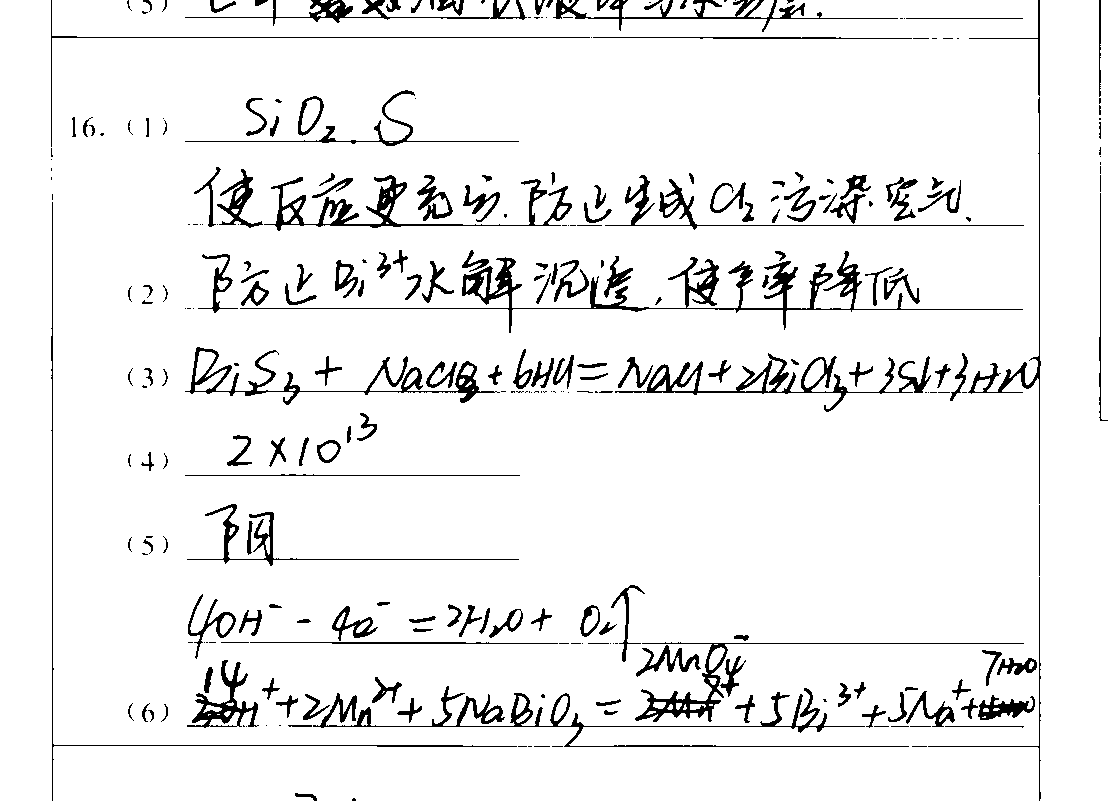 16. (1) SiO₂. S
使反应更充分.防止生成Cl₂污染空气.
(2) 防止Bi³⁺水解沉淀,使产率降低
(3) Bi₂S₃ + NaClO₃ + 6HCl = NaCl + 2BiCl₃ + 3S↓ + 3H₂O
(4) 2×10¹³
(5) 阴
4OH⁻ - 4e⁻ = 2H₂O + O₂↑
(6) 14H⁺ + 2Mn²⁺ + 5NaBiO₃ = 2MnO₄⁻ + 5Bi³⁺ + 5Na⁺ + 7H₂O